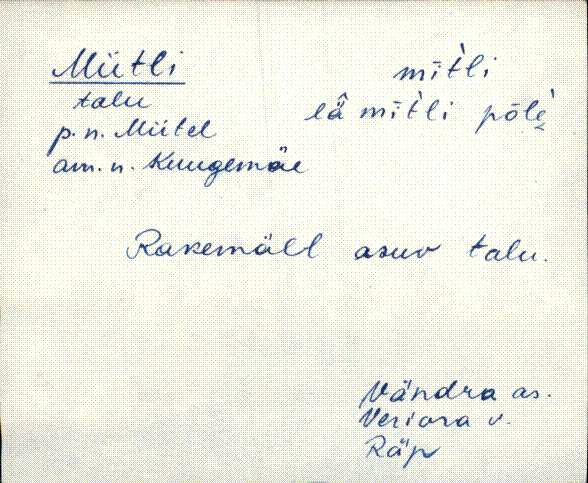 Mütli
talu
p. n. Mütel
am. n. Kuugemäe
mīt̀li
lǟ mīt̀li põlè
Rakemäll asuv talu.
Vändra as.
Veriora v.
Räp